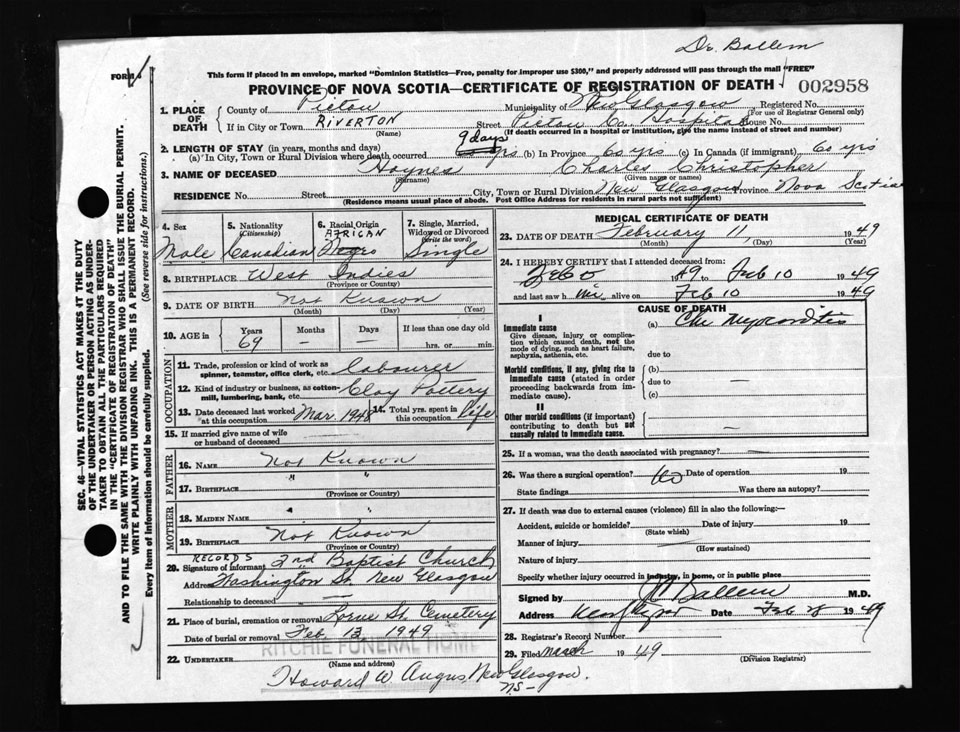 Dr. Ballem
FORM
This form if placed in an envelope, marked "Dominion Statistics—Free, penalty for improper use $300," and properly addressed will pass through the mail "FREE"
PROVINCE OF NOVA SCOTIA—CERTIFICATE OF REGISTRATION OF DEATH
002958
1. PLACE OF DEATH
County of Pictou Municipality of New Glasgow Registered No.
(For use of Registrar General only)
If in City or Town RIVERTON Street Pictou Co. Hospital House No.
(Name) (If death occurred in a hospital or institution, give the name instead of street and number)
2. LENGTH OF STAY (in years, months and days) 9 days
(a) In City, Town or Rural Division where death occurred yrs (b) In Province 60 yrs (c) In Canada (if immigrant) 60 yrs
3. NAME OF DECEASED Haynes Charles Christopher
(Surname) (Given name or names)
RESIDENCE No. Street City, Town or Rural Division New Glasgow Province Nova Scotia
(Residence means usual place of abode. Post Office Address for residents in rural parts not sufficient)
4. Sex Male
5. Nationality (Citizenship) Canadian
6. Racial Origin AFRICAN Negro
7. Single, Married, Widowed or Divorced (write the word) Single
8. BIRTHPLACE West Indies
(Province or Country)
9. DATE OF BIRTH Not Known
(Month) (Day) (Year)
10. AGE in Years Months Days If less than one day old
69 — — hrs. or min.
OCCUPATION
11. Trade, profession or kind of work as spinner, teamster, office clerk, etc. Labourer
12. Kind of industry or business, as cotton-mill, lumbering, bank, etc. Clay Pottery
13. Date deceased last worked at this occupation Mar. 1948 14. Total yrs. spent in this occupation life
15. If married give name of wife or husband of deceased —
FATHER
16. NAME Not Known
17. BIRTHPLACE " "
(Province or Country)
MOTHER
18. MAIDEN NAME " "
19. BIRTHPLACE Not Known
(Province or Country)
RECORDS
20. Signature of informant 2nd Baptist Church
Address Washington St. New Glasgow
Relationship to deceased —
21. Place of burial, cremation or removal Lorne St. Cemetery
Date of burial or removal Feb. 13 1949
RITCHIE FUNERAL HOME
22. UNDERTAKER
(Name and address)
Howard W Angus, New Glasgow.
N.S—
MEDICAL CERTIFICATE OF DEATH
23. DATE OF DEATH February 11 1949
(Month) (Day) (Year)
24. I HEREBY CERTIFY that I attended deceased from:
1949 to Feb 10 1949
and last saw him alive on Feb 10 1949
CAUSE OF DEATH
I
Immediate cause
Give disease, injury or complication which caused death, not the mode of dying, such as heart failure, asphyxia, asthenia, etc.
(a) Chr Myocarditis
due to
Morbid conditions, if any, giving rise to immediate cause (stated in order proceeding backwards from immediate cause).
(b) —
due to
(c)
II
Other morbid conditions (if important) contributing to death but not causally related to immediate cause. —
25. If a woman, was the death associated with pregnancy? —
26. Was there a surgical operation? No Date of operation 19
State findings Was there an autopsy?
27. If death was due to external causes (violence) fill in also the following:—
Accident, suicide or homicide? Date of injury 19
(State which)
Manner of injury
(How sustained)
Nature of injury
Specify whether injury occurred in industry, in home, or in public place
Signed by Ballem M.D.
Address New Glasgow Date Feb 1949
28. Registrar's Record Number
29. Filed March 1949
(Division Registrar)
SEC. 46—VITAL STATISTICS ACT MAKES IT THE DUTY
OF THE UNDERTAKER OR PERSON ACTING AS UNDER-
TAKER TO OBTAIN ALL THE PARTICULARS REQUIRED
IN THE "CERTIFICATE OF REGISTRATION OF DEATH"
AND TO FILE THE SAME WITH THE DIVISION REGISTRAR WHO SHALL ISSUE THE BURIAL PERMIT.
WRITE PLAINLY WITH UNFADING INK. THIS IS A PERMANENT RECORD.
Every item of information should be carefully supplied. (See reverse side for instructions.)